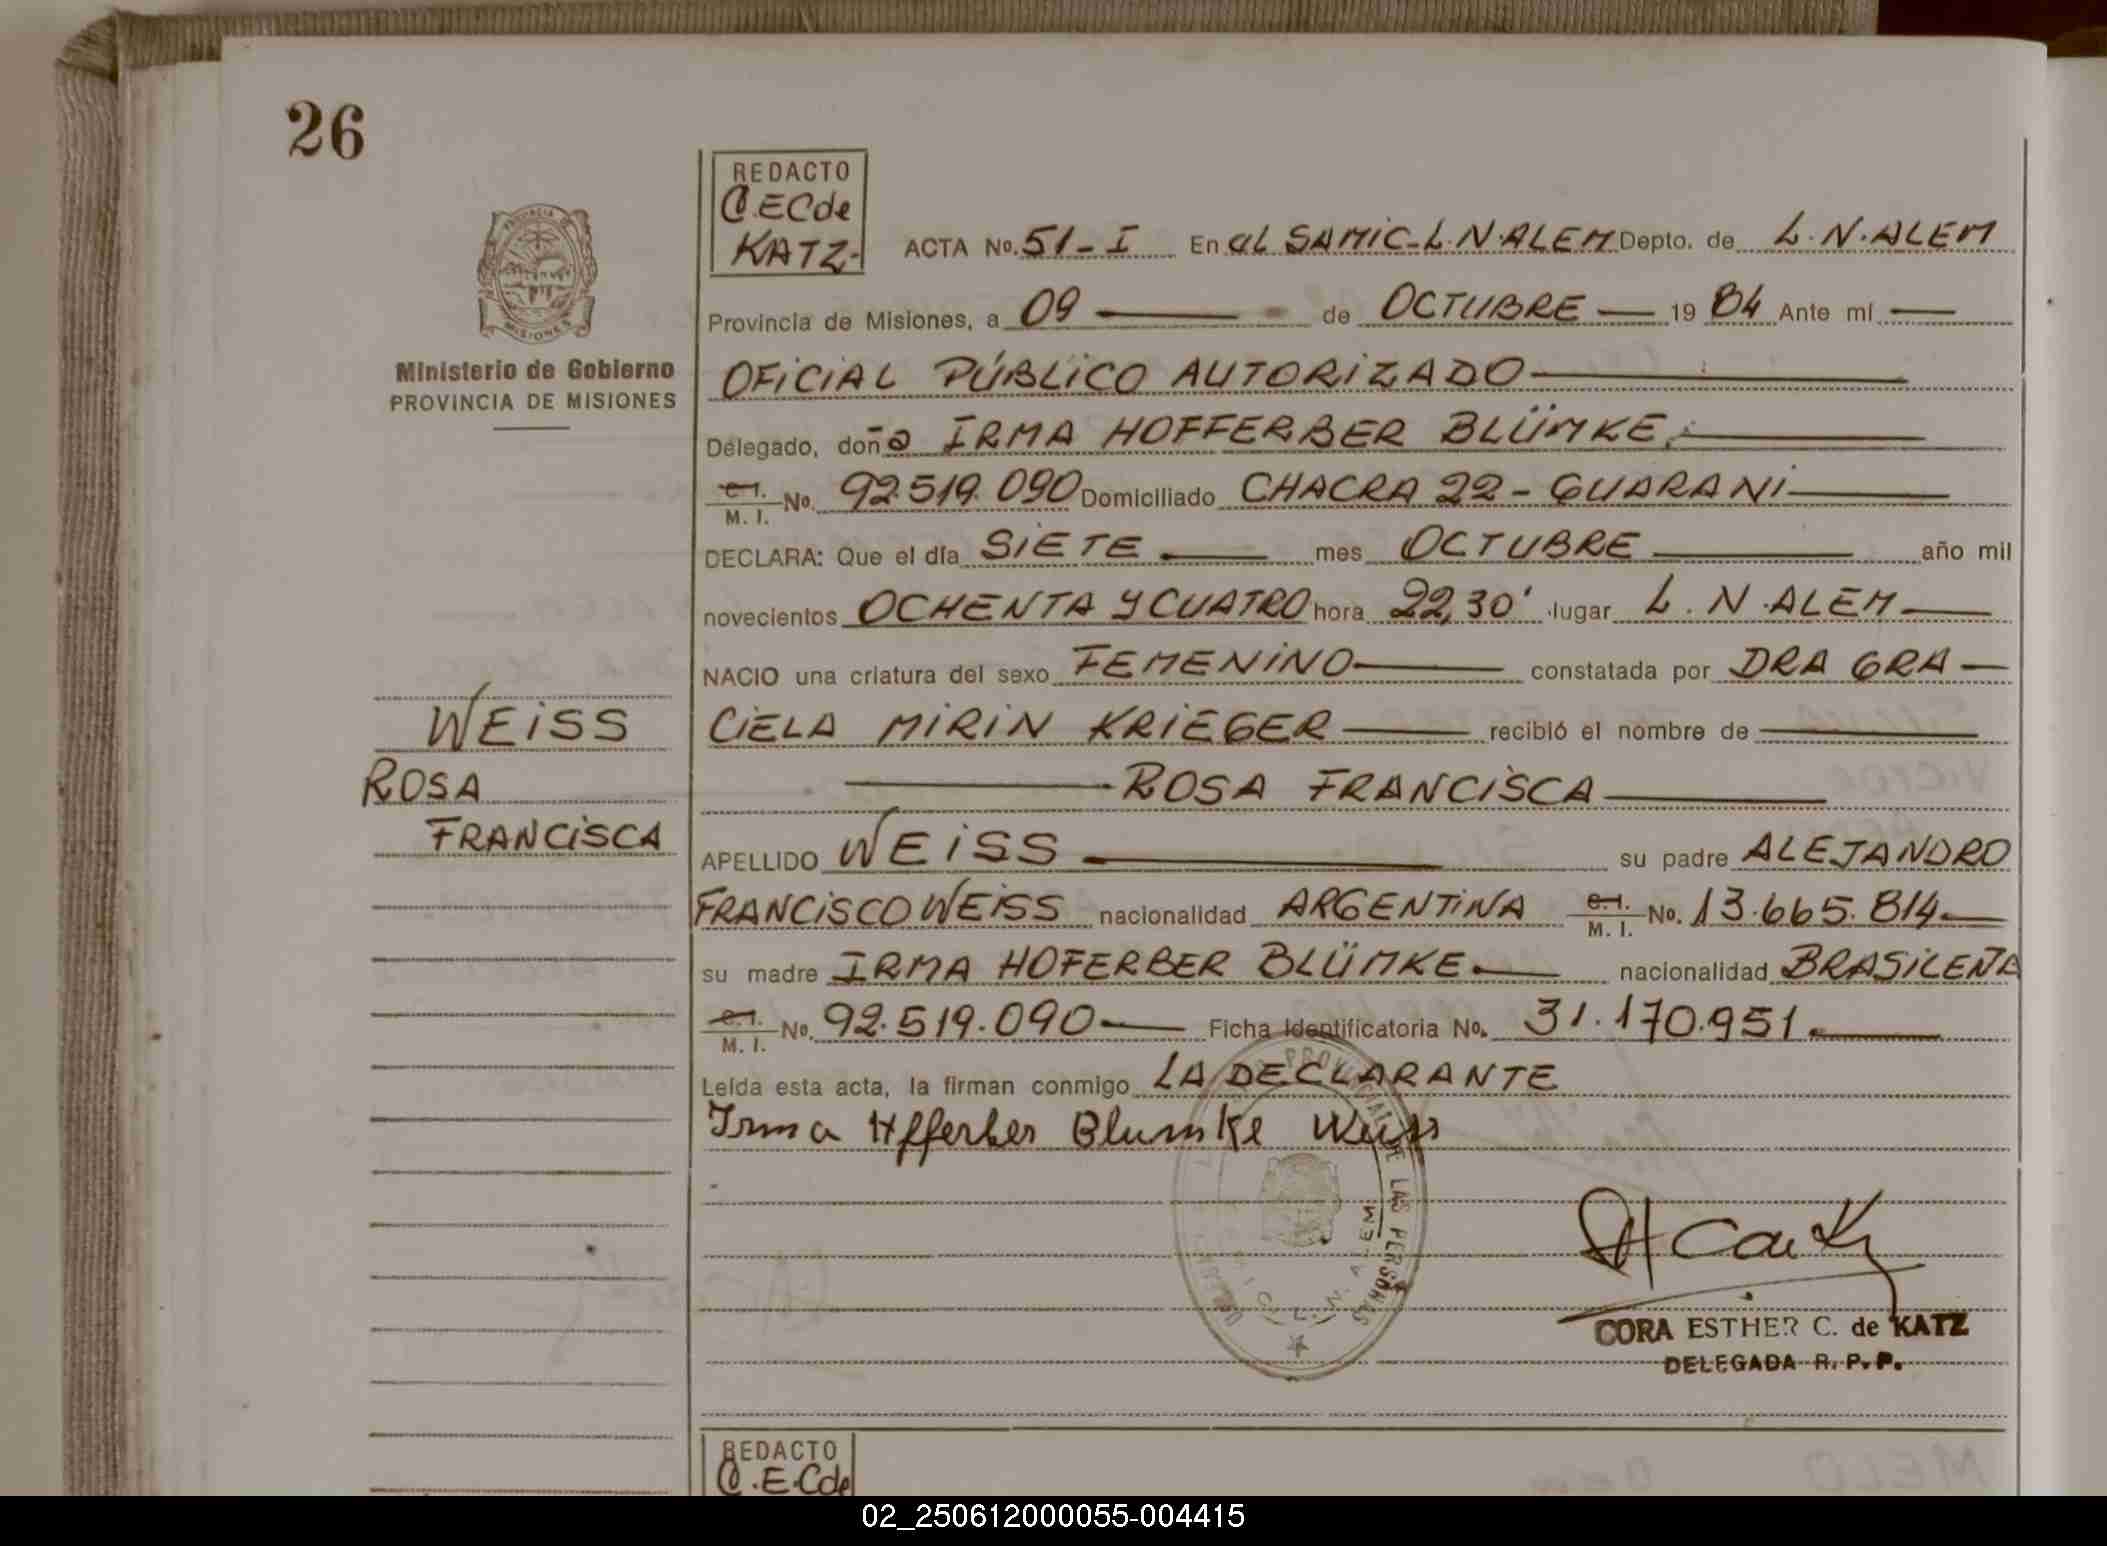 26
REDACTO
C.ECde
KATZ-
ACTA No. 51-I En el SAMIC-L.N.ALEM Depto. de L.N.ALEM
PROVINCIA DE MISIONES
Provincia de Misiones, a 09 — de OCTUBRE — 19 84 Ante mí —
Ministerio de Gobierno
PROVINCIA DE MISIONES
OFICIAL PÚBLICO AUTORIZADO —
Delegado, doña IRMA HOFFERBER BLÜMKE. —
C.I. M. I. No. 92.519.090 Domiciliado CHACRA 22 - GUARANI —
DECLARA: Que el día SIETE — mes OCTUBRE — año mil
novecientos OCHENTA Y CUATRO hora 22,30' lugar L.N.ALEM —
NACIO una criatura del sexo FEMENINO — constatada por DRA GRA —
WEISS
CIELA MIRIN KRIEGER — recibió el nombre de —
ROSA
— ROSA FRANCISCA —
FRANCISCA
APELLIDO WEISS — su padre ALEJANDRO
FRANCISCO WEISS nacionalidad ARGENTINA C.I. M. I. No. 13.665.814 —
su madre IRMA HOFERBER BLÜMKE — nacionalidad BRASILEÑA
C.I. M. I. No. 92.519.090 — Ficha Identificatoria No. 31.170.951. —
Leída esta acta, la firman conmigo LA DECLARANTE
Irma Hfferber Blumke Weiss
PROVINCIAL DE LAS PERSONAS
L. N. ALEM
CORA ESTHER C. de KATZ
DELEGADA R. P. P.
REDACTO
C.E.Cde
02_250612000055-004415